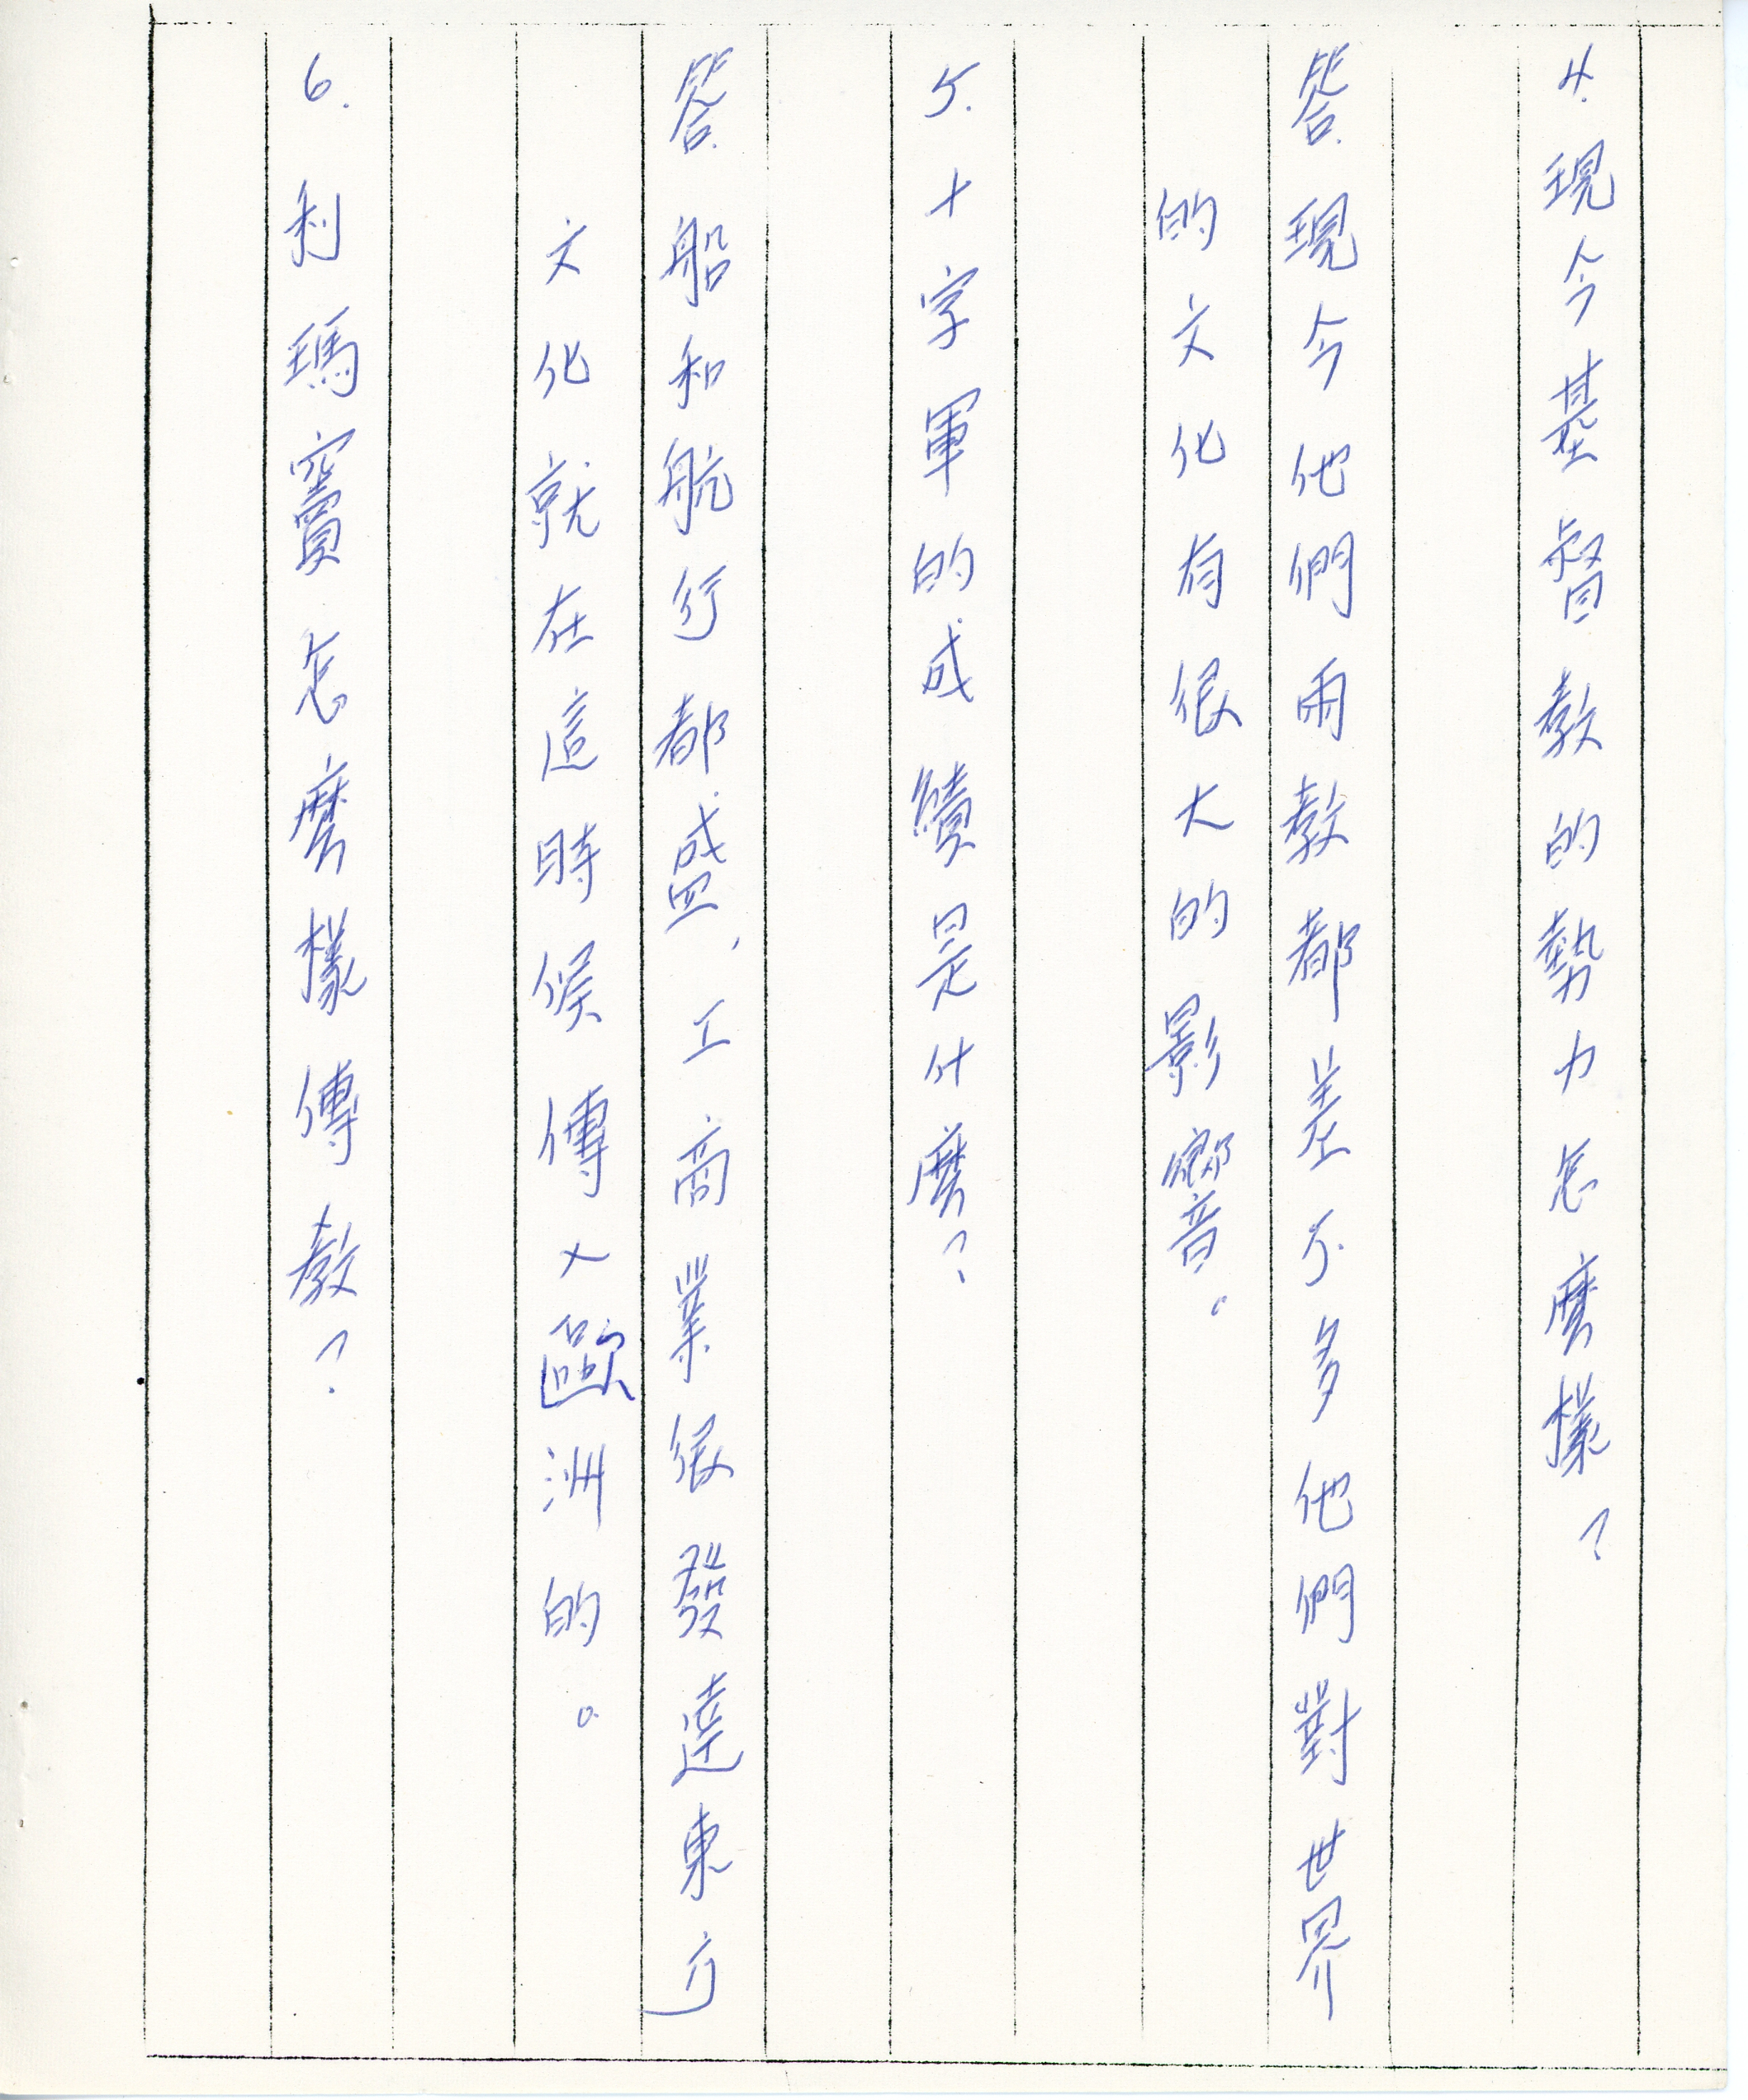 4.現今基督教的勢力怎麽樣?
答現今他們兩教都差不多他們對世界
的文化有很大的影響。
5.十字軍的成績是什麽?
答船和航行都盛、工商業很發達東方
文化就在這時候傳入歐洲的。
6.利瑪竇怎麽樣傳教?